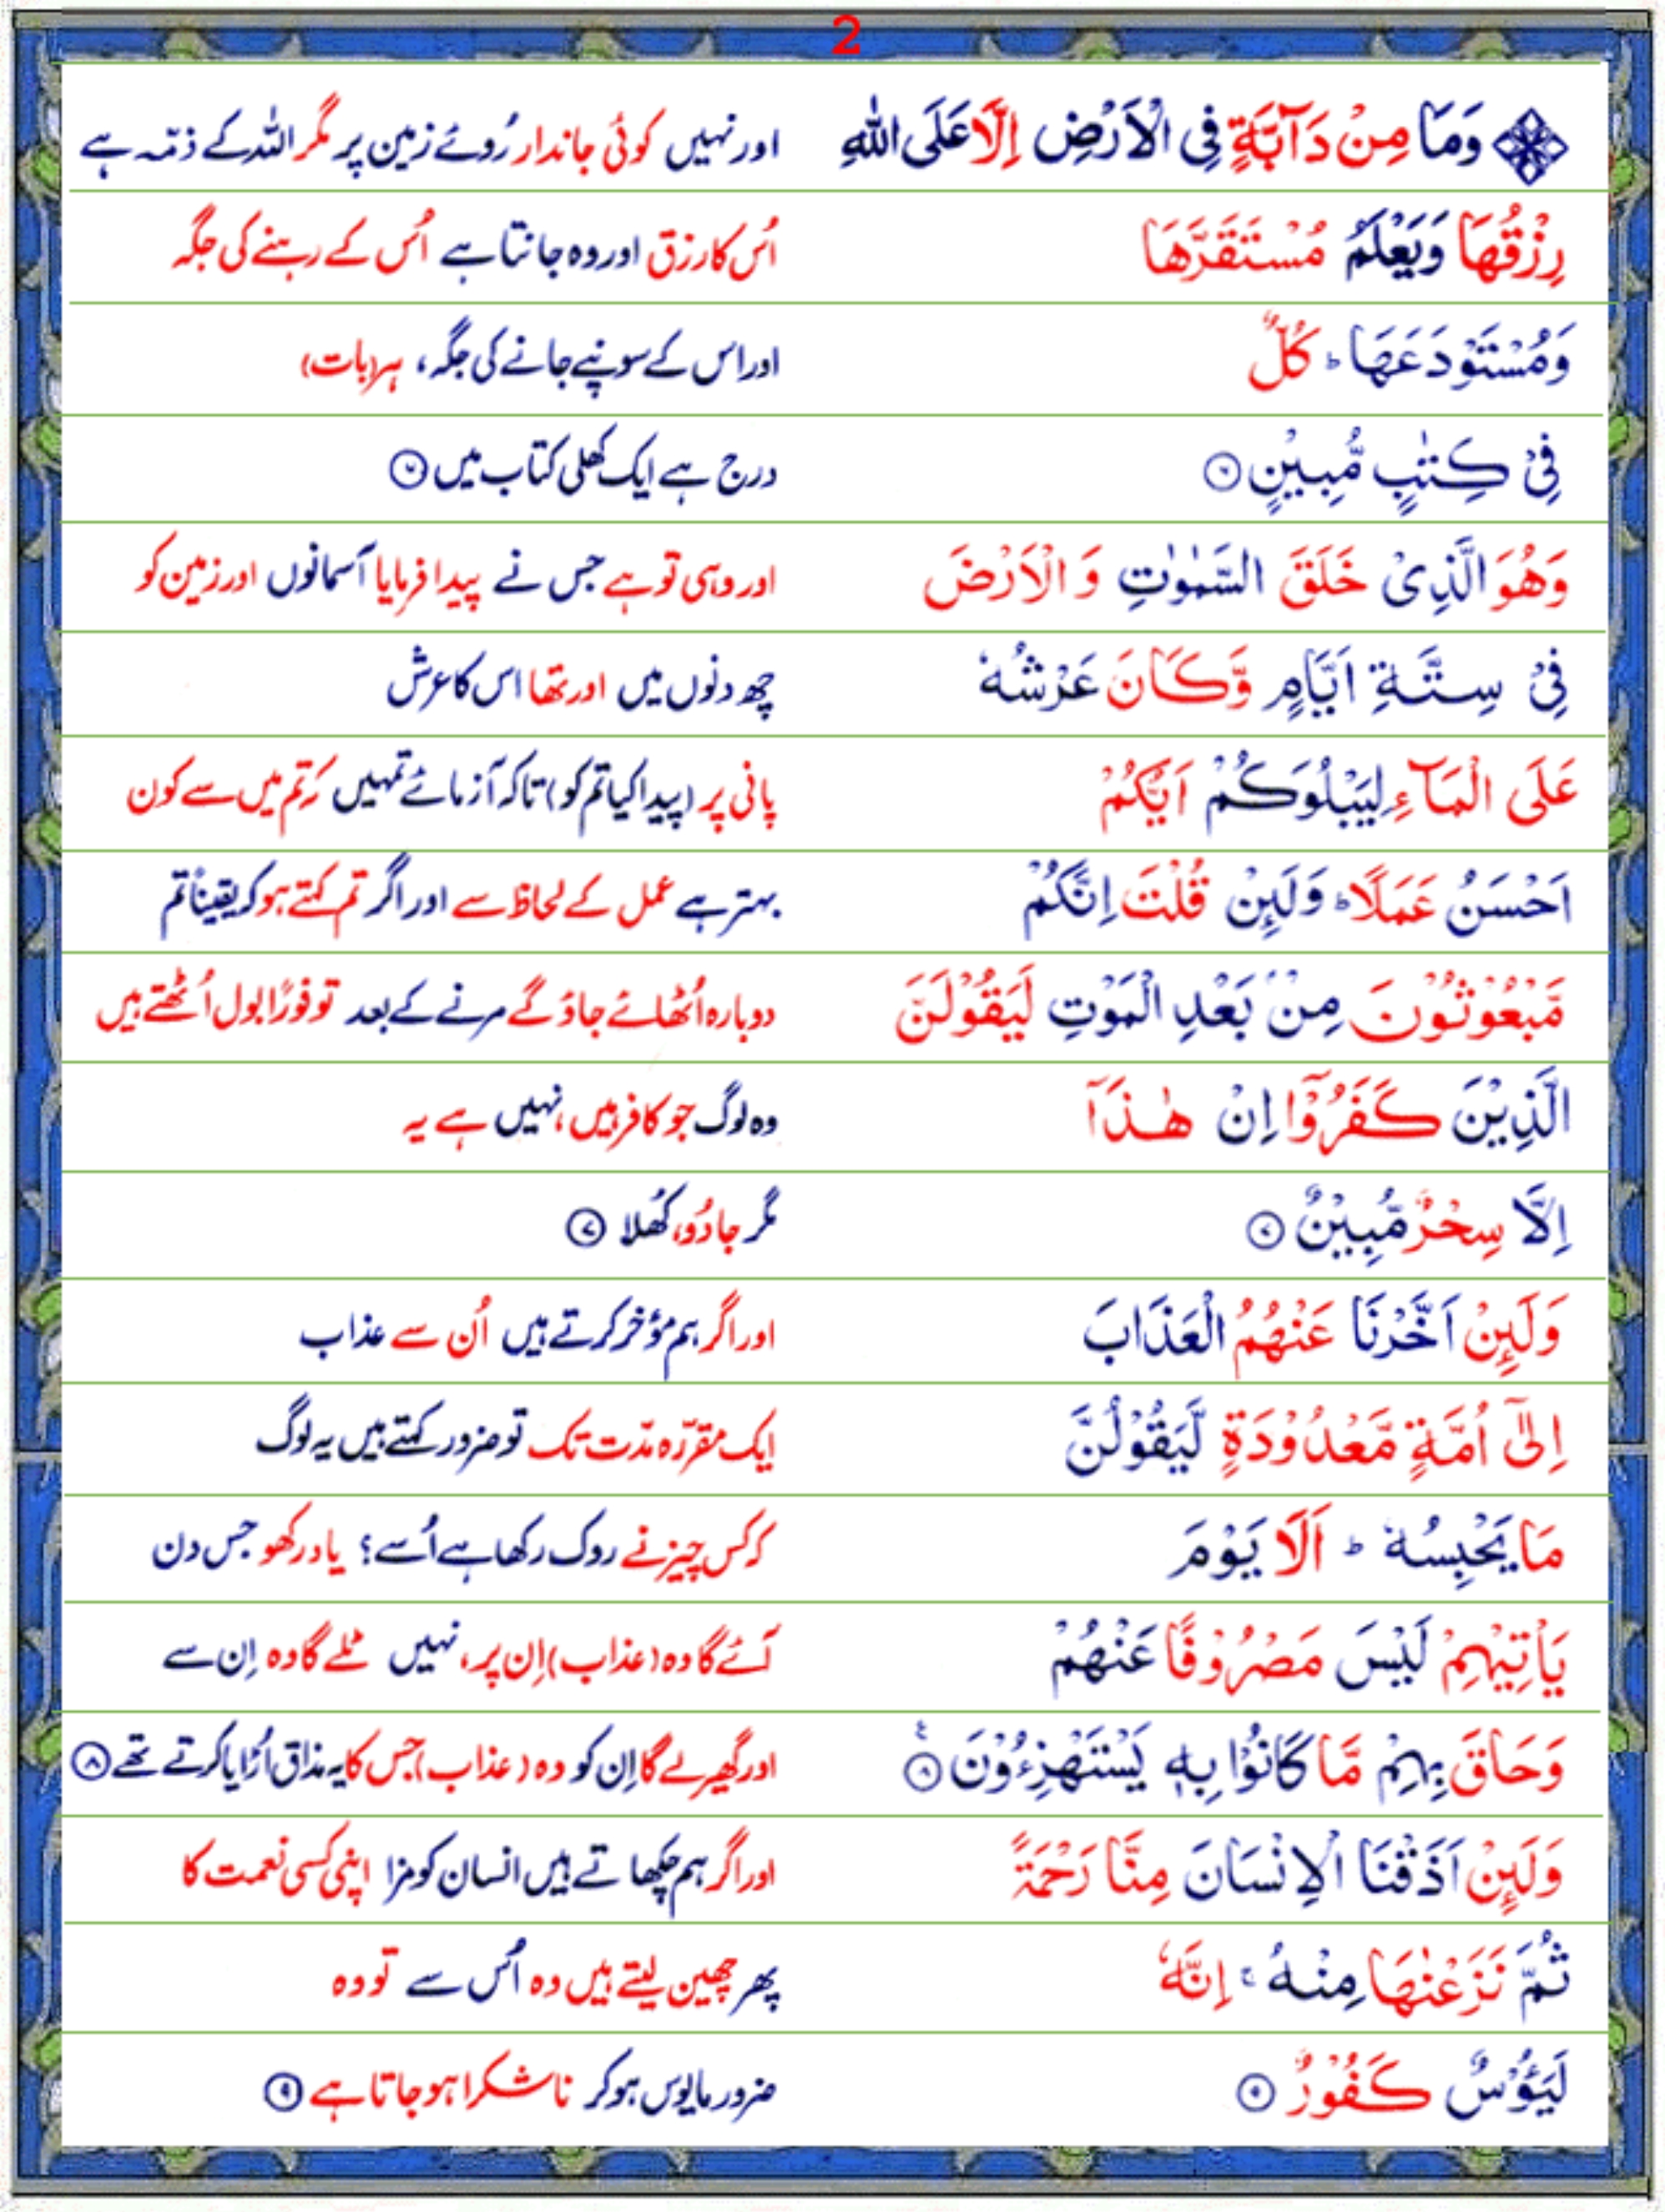 2
وَمَا مِنْ دَآبَّةٍ فِى الْاَرْضِ اِلَّا عَلَى اللّٰهِ اور نہیں کوئی جاندار رُوئے زمین پر مگر اللہ کے ذمّہ ہے
رِزْقُهَا وَيَعْلَمُ مُسْتَقَرَّهَا اُس کا رزق اور وہ جانتا ہے اُس کے رہنے کی جگہ
وَمُسْتَوْدَعَهَا ؕ كُلٌّ اور اس کے سونپے جانے کی جگہ، ہر (بات)
فِىْ كِتٰبٍ مُّبِيْنٍ ۶ درج ہے ایک کھلی کتاب میں ۶
وَهُوَ الَّذِىْ خَلَقَ السَّمٰوٰتِ وَ الْاَرْضَ اور وہی تو ہے جس نے پیدا فرمایا آسمانوں اور زمین کو
فِىْ سِتَّةِ اَيَّامٍ وَّكَانَ عَرْشُهٗ چھ دنوں میں اور تھا اس کا عرش
عَلَى الْمَآءِ لِيَبْلُوَكُمْ اَيُّكُمْ پانی پر (پیدا کیا تم کو) تاکہ آزمائے تمہیں کہ تم میں سے کون
اَحْسَنُ عَمَلًا ؕ وَلَىِٕنْ قُلْتَ اِنَّكُمْ بہتر ہے عمل کے لحاظ سے اور اگر تم کہتے ہو کہ یقیناً تم
مَّبْعُوْثُوْنَ مِنْۢ بَعْدِ الْمَوْتِ لَيَقُوْلَنَّ دوبارہ اُٹھائے جاؤ گے مرنے کے بعد تو فورًا بول اُٹھتے ہیں
الَّذِيْنَ كَفَرُوْٓا اِنْ هٰذَآ وہ لوگ جو کافر ہیں، نہیں ہے یہ
اِلَّا سِحْرٌ مُّبِيْنٌ ۷ مگر جادُو، کُھلا ۷
وَلَىِٕنْ اَخَّرْنَا عَنْهُمُ الْعَذَابَ اور اگر ہم مؤخر کرتے ہیں اُن سے عذاب
اِلٰٓى اُمَّةٍ مَّعْدُوْدَةٍ لَّيَقُوْلُنَّ ایک مقرّرہ مدّت تک تو ضرور کہتے ہیں یہ لوگ
مَا يَحْبِسُهٗ ؕ اَلَا يَوْمَ کہ کس چیز نے روک رکھا ہے اُسے؟ یاد رکھو جس دن
يَاْتِيْهِمْ لَيْسَ مَصْرُوْفًا عَنْهُمْ آئے گا وہ (عذاب) اِن پر، نہیں ٹلے گا وہ اِن سے
وَحَاقَ بِهِمْ مَّا كَانُوْا بِهٖ يَسْتَهْزِءُوْنَ ۸ اور گھیر لے گا اِن کو وہ (عذاب) جس کا یہ مذاق اُڑایا کرتے تھے ۸
وَلَىِٕنْ اَذَقْنَا الْاِنْسَانَ مِنَّا رَحْمَةً اور اگر ہم چکھاتے ہیں انسان کو مزا اپنی کسی نعمت کا
ثُمَّ نَزَعْنٰهَا مِنْهُ ۚ اِنَّهٗ پھر چھین لیتے ہیں وہ اُس سے تو وہ
لَيَـُٔوْسٌ كَفُوْرٌ ۹ ضرور مایوس ہو کر ناشکرا ہو جاتا ہے ۹